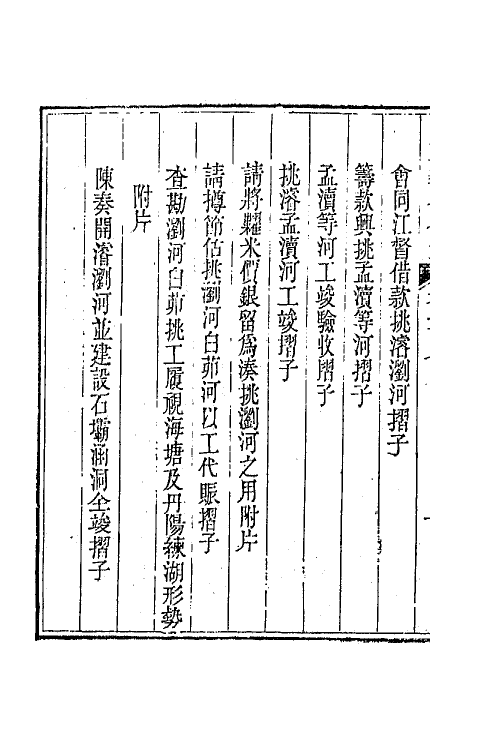 會同江督借款挑濬瀏河摺子
籌款興挑孟瀆等河摺子
孟瀆等河工竣驗收摺子
挑濬孟瀆河工竣摺子
請將糶米價銀留爲湊挑瀏河之用附片
請撙節估挑瀏河白茆河以工代賑摺子
查勘瀏河白茆挑工履視海塘及丹陽練湖形勢
附片
陳奏開濬瀏河並建設石壩涵洞全竣摺子